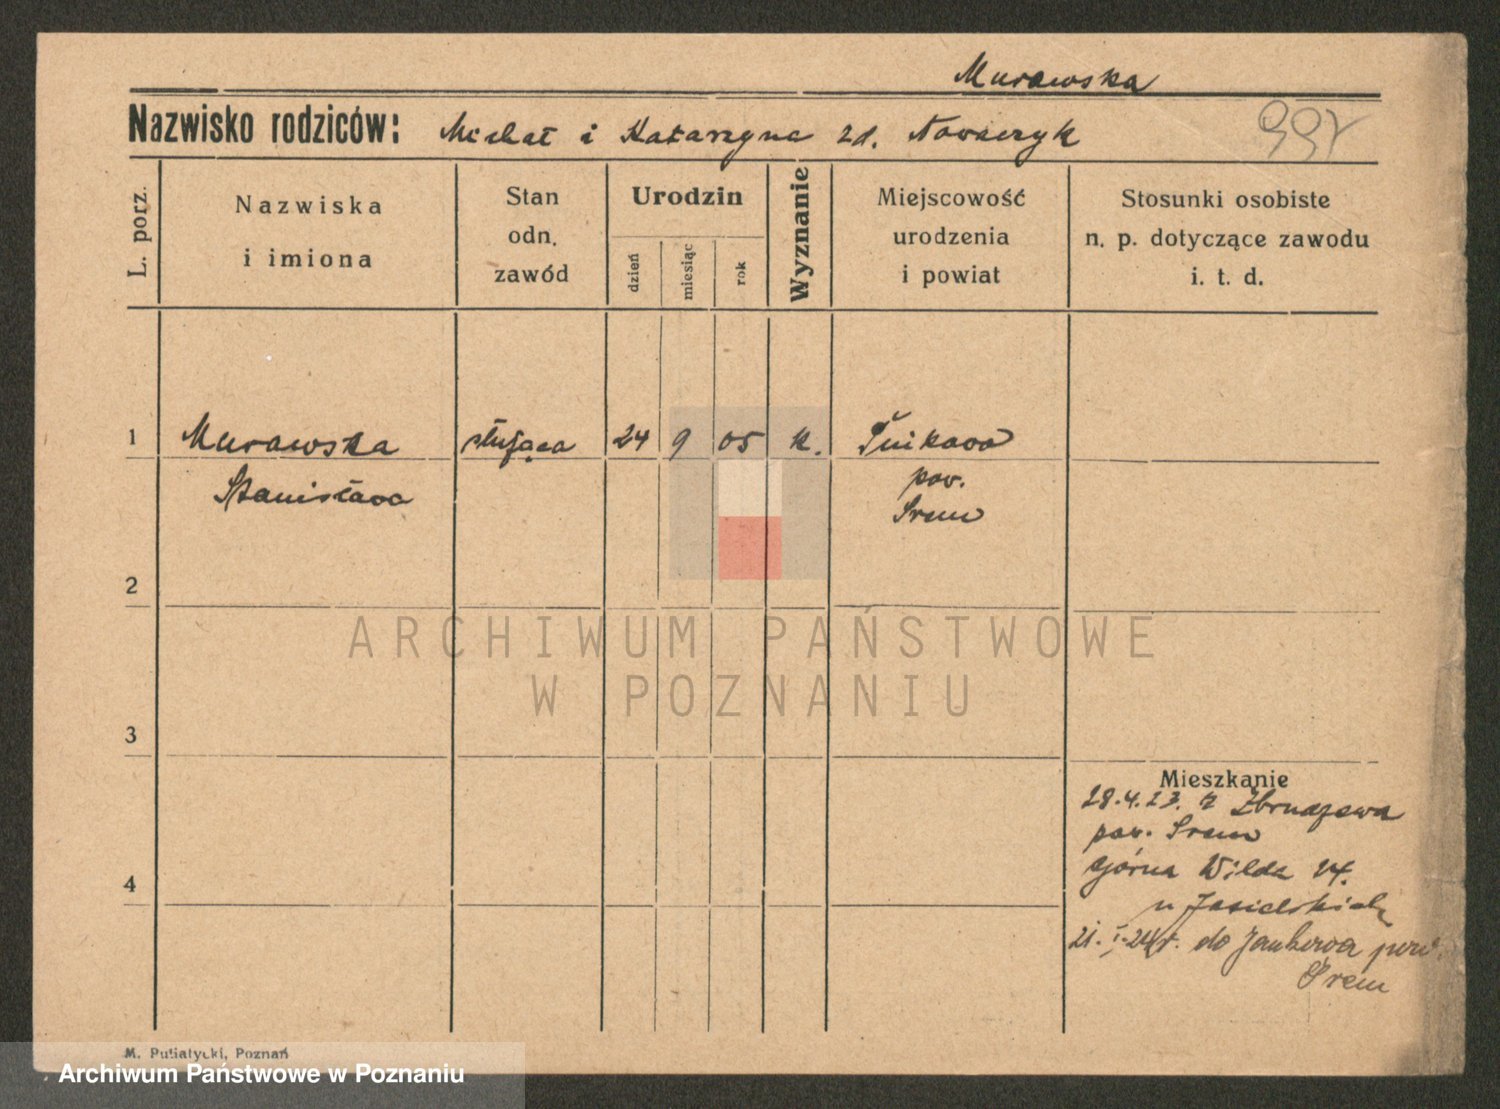 Murawska
Nazwisko rodziców: Michał i Katarzyna zd. Nowaczyk
997
L. porz.
Nazwiska
i imiona
Stan
odn.
zawód
Urodzin
dzień
miesiąc
rok
Wyznanie
Miejscowość
urodzenia
i powiat
Stosunki osobiste
n. p. dotyczące zawodu
i. t. d.
1 Murawska służąca 24 9 05 k.
Stanisława
pow.
Śrem
2
ARCHIWUM PAŃSTWOWE
W POZNANIU
3
Mieszkanie
28.4.23. z
pow. Śrem
Górna Wilda
4
u Jasielskich
21. I. 24 r. do pow.
Śrem
M. Putiatycki, Poznań
Archiwum Państwowe w Poznaniu